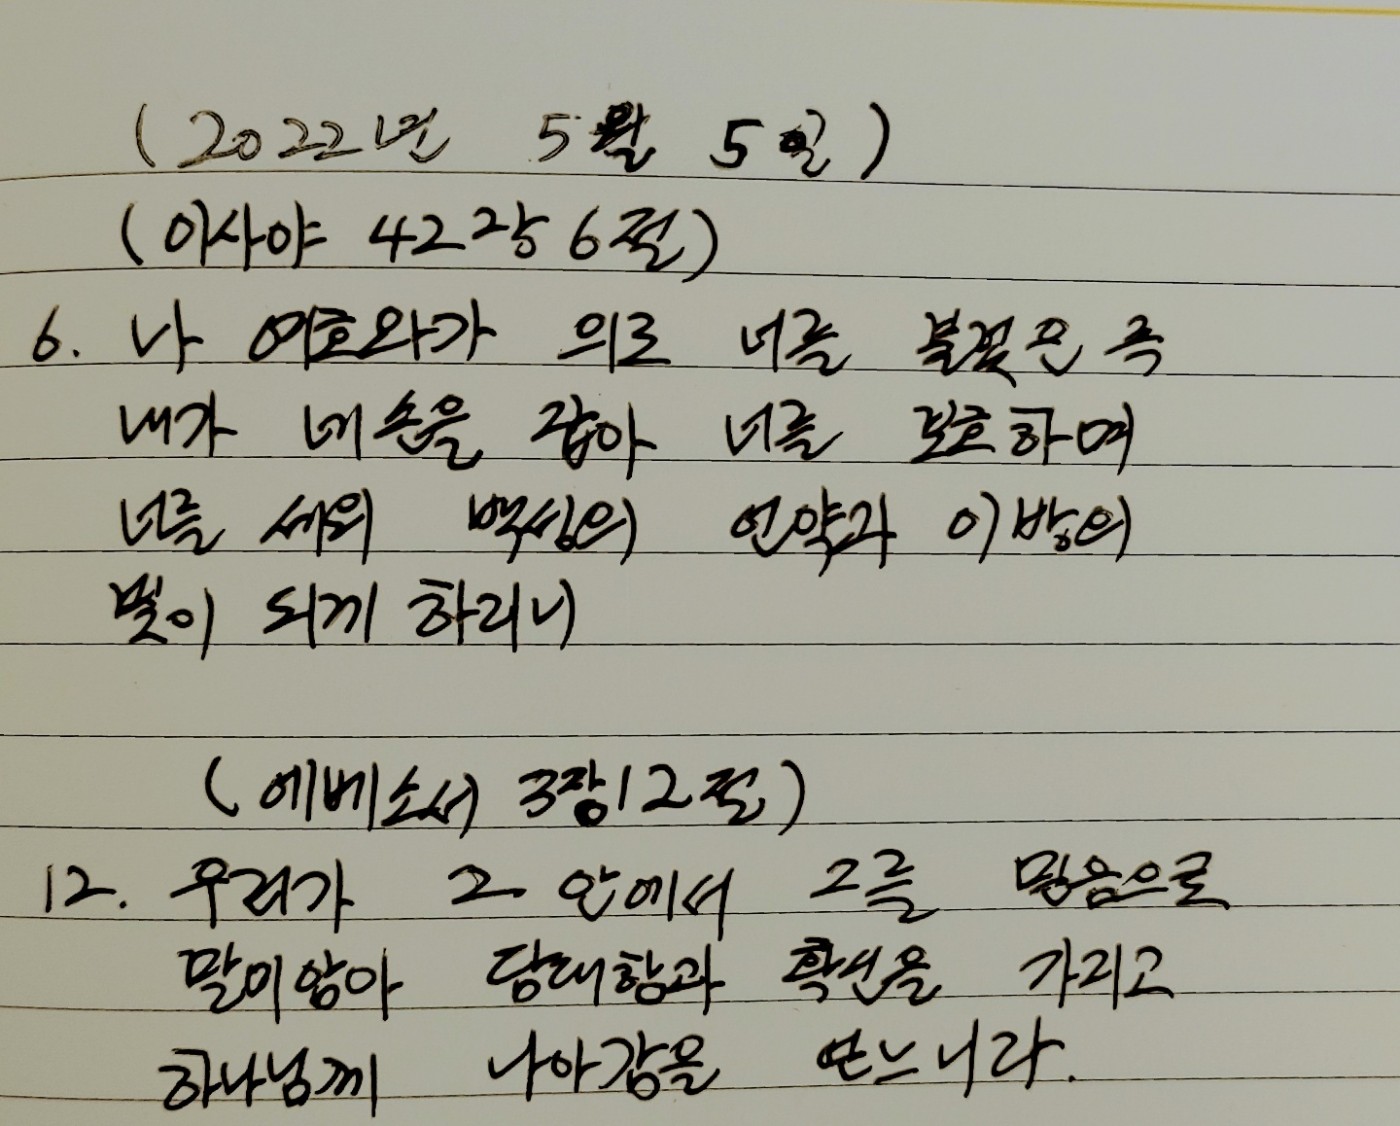 (2022년 5월 5일)
(이사야 42장 6절)
6. 나 여호와가 의로 너를 불렀은 즉
내가 네 손을 잡아 너를 보호하며
너를 세워 백성의 언약과 이방의
빛이 되게 하리니
(에베소서 3장 12절)
12. 우리가 그 안에서 그를 믿음으로
말미암아 담대함과 확신을 가지고
하나님께 나아감을 얻느니라.